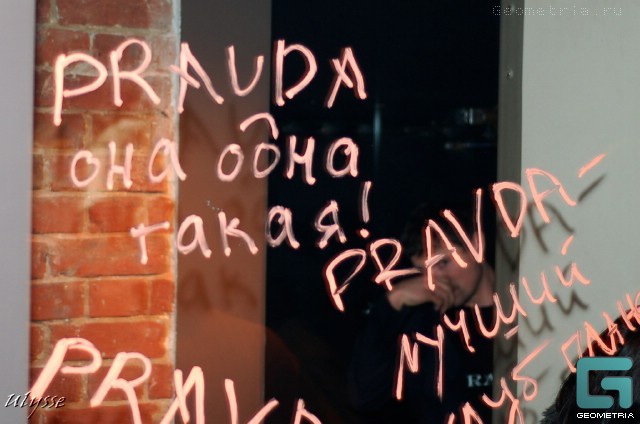 Geometria.ru
PRAVDA
она одна
такая!
PRAVDA-
лучший
клуб
PRAVDA
Ulysse
G
GEOMETRIA